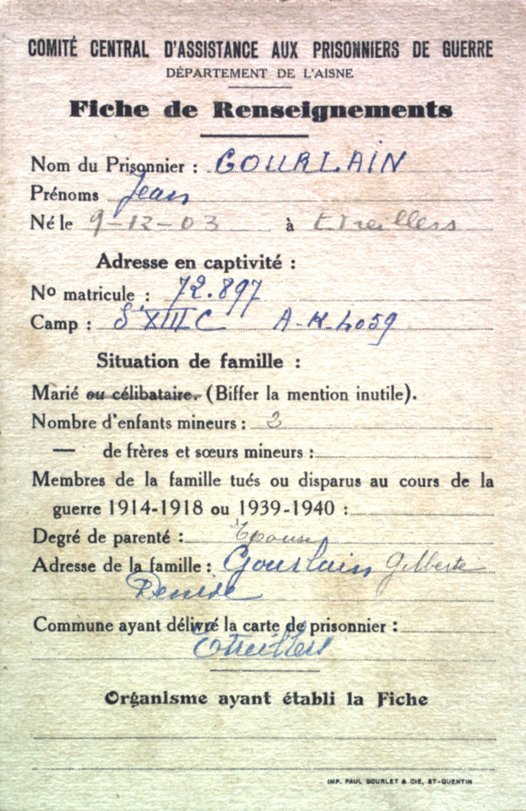 COMITÉ CENTRAL D'ASSISTANCE AUX PRISONNIERS DE GUERRE
DÉPARTEMENT DE L'AISNE
Fiche de Renseignements
Nom du Prisonnier : GOURLAIN
Prénoms Jean
Né le 9-12-03 à Etreillers
Adresse en captivité :
No matricule : 72.897
Camp : St XIII C A-K 4059
Situation de famille :
Marié ou célibataire. (Biffer la mention inutile).
Nombre d'enfants mineurs : 2
— de frères et sœurs mineurs :
Membres de la famille tués ou disparus au cours de la
guerre 1914-1918 ou 1939-1940 :
Degré de parenté : Epouse
Adresse de la famille : Gourlain Gilberte
Denise
Commune ayant délivré la carte de prisonnier :
Etreillers
Organisme ayant établi la Fiche
IMP. PAUL BOURLET & CIE, ST-QUENTIN